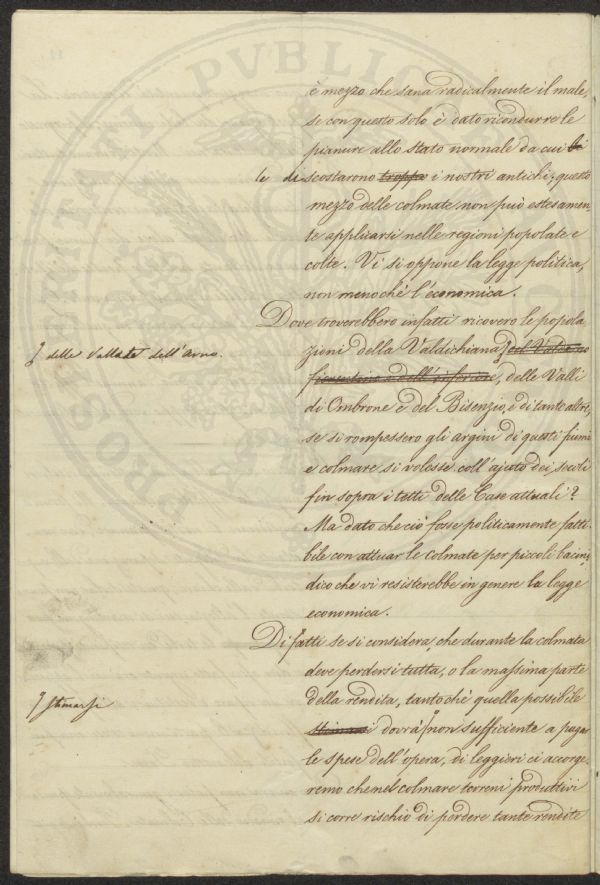 è mezzo che sana radicalmente il male,
se con questo solo è dato ricondurre le
pianure allo stato normale da cui
le discostarono troppo i nostri antichi; questo
mezzo delle colmate non può estesamen-
te applicarsi nelle regioni popolate e
colte. Vi si oppone la legge politica,
non meno chè l'economica.
Dove troverebbero infatti ricovero le popola
zioni della Valdichiana, del Valdarno
ʃ delle Vallate dell'Arno.
Fiorentino e dell'inferiore, delle Valli
di Ombrone e del Bisenzio, e di tante altre,
se si rompessero gli argini di questi fiumi
e colmare si volesse coll'ajuto dei secoli
fin sopra i tetti delle Case attuali?
Ma dato che ciò fosse politicamente fatti-
bile con attuar le Colmate per piccoli bacini,
dico che vi resisterebbe in genere la legge
economica.
Difatti se si considera, che durante la colmata
deve perdersi tutta, o la massima parte
della rendita, tantochè quella possibile
ʃ stimarsi
dovrà ʃ non sufficiente a pagar
le spese dell'opera, di leggieri ci accorge-
remo che nel colmare terreni produttivi
si corre rischio di perdere tante rendite
PROSPERITATI PVBLICAE